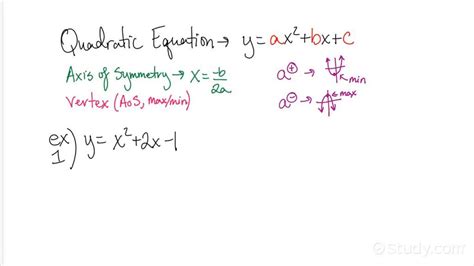 Quadratic Equation → y=ax²+bx+c
Axis of Symmetry → x=-b/2a
Vertex (AoS, max/min)
a⊕ → min
a⊖ → max
ex 1) y= x²+2x-1
Study.com